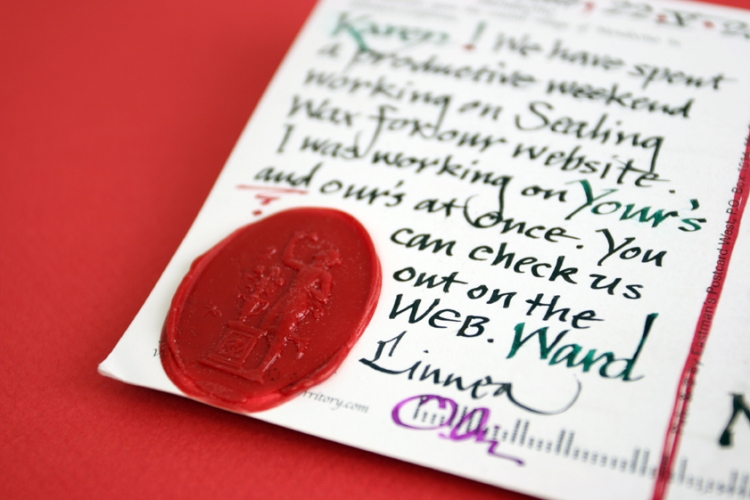 22·X·2
Karen! We have spent
a productive weekend
working on Sealing
Wax for our website.
I was working on Your's
and our's at once. You
can check us
out on the
WEB. Ward
Linnea
rritory.com